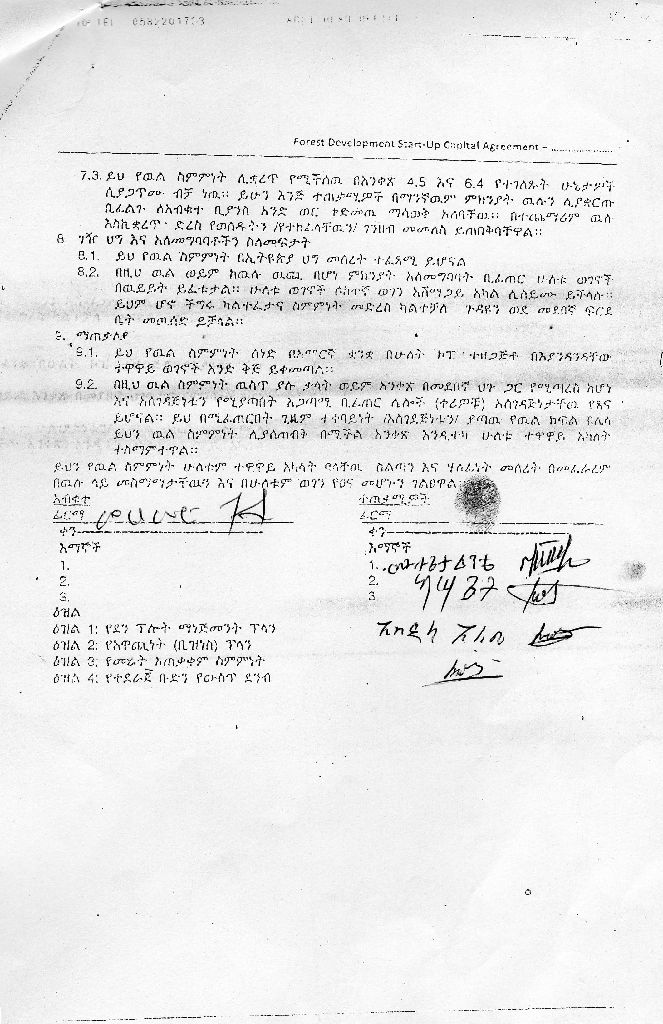 TEL 0582201703
Forest Development Start-Up Capital Agreement –
7.3. ይህ የዉል ስምምነት ሊቋረጥ የሚችለዉ በአንቀጽ 4.5 እና 6.4 የተገለጹት ሁኔታዎች
ሲያጋጥሙ ብቻ ነዉ። ይሁን እንጅ ተጠቃሚዎች በማንኛዉም ምክንያት ዉሉን ሊያቋርጡ
ቢፈልጉ ለአብቁተ ቢያንስ አንድ ወር ቀድመዉ ማሳወቅ አለባቸዉ። በተጨማሪም ዉሉ
እስኪቋረጥ ድረስ የወሰዱትን /የተከፈላቸዉን/ ገንዘብ መመለስ ይጠበቅባቸዋል።
8. ገዥ ህግ እና አለመግባባቶችን ስለመፍታት
8.1. ይህ የዉል ስምምነት በኢትዮጵያ ህግ መሰረት ተፈጻሚ ይሆናል
8.2. በዚህ ዉል ወይም ከዉሉ ዉጪ በሆነ ምክንያት አለመግባባት ቢፈጠር ሁለቱ ወገኖች
በዉይይት ይፈቱታል። ሁለቱ ወገኖች ሶስተኛ ወገን አሸማጋይ አካል ሊሰይሙ ይችላሉ።
ይህም ሆኖ ችግሩ ካልተፈታና ስምምነት መድረስ ካልተቻለ ጉዳዩን ወደ መደበኛ ፍርድ
ቤት መዉሰድ ይቻላል።
9. ማጠቃለያ
9.1. ይህ የዉል ስምምነት ሰነድ በአማርኛ ቋንቋ በሁለት ኮፒ ተዘጋጅቶ በእያንዳንዳቸው
ተዋዋይ ወገኖች አንድ ቅጅ ይቀመጣል።
9.2. በዚህ ዉል ስምምነት ዉስጥ ያሉ ቃላት ወይም አንቀጽ በመደበኛ ህጉ ጋር የሚጣረስ ከሆነ
እና አስገዳጅነቱን የሚያጣበት አጋጣሚ ቢፈጠር ሌሎች (ቀሪዎቹ) አስገዳጅነታቸዉ የጸና
ይሆናል። ይህ በሚፈጠርበት ጊዜም ተቀባይነት /አስገዳጅነቱን/ ያጣዉ የዉል ክፍል ሌላ
ይህን ዉል ስምምነት ሊያጠብቅ በሚችል አንቀጽ እንዲተካ ሁለቱ ተዋዋይ አካላት
ተስማምተዋል።
ይህን የዉል ስምምነት ሁለቱም ተዋዋይ አካላት ባላቸዉ ስልጣን እና ሃላፊነት መሰረት በመፈራረም
በዉሉ ላይ መስማማታቸዉን እና በሁለቱም ወገን የፀና መሆኑን ገልፀዋል።
አብቁተ
ተጠቃሚዎች
ፊርማ
ፊርማ
ቀን
ቀን
እማኞች
እማኞች
1.
1.
2.
2.
3.
3.
ዕዝል
ዕዝል 1: የደን ፕሎት ማነጅመንት ፕላን
ዕዝል 2: የአዋጪነት (ቢዝነስ) ፕላን
ዕዝል 3: የመሬት አጠቃቀም ስምምነት
ዕዝል 4: የተደራጀ ቡድን የውስጥ ደንብ